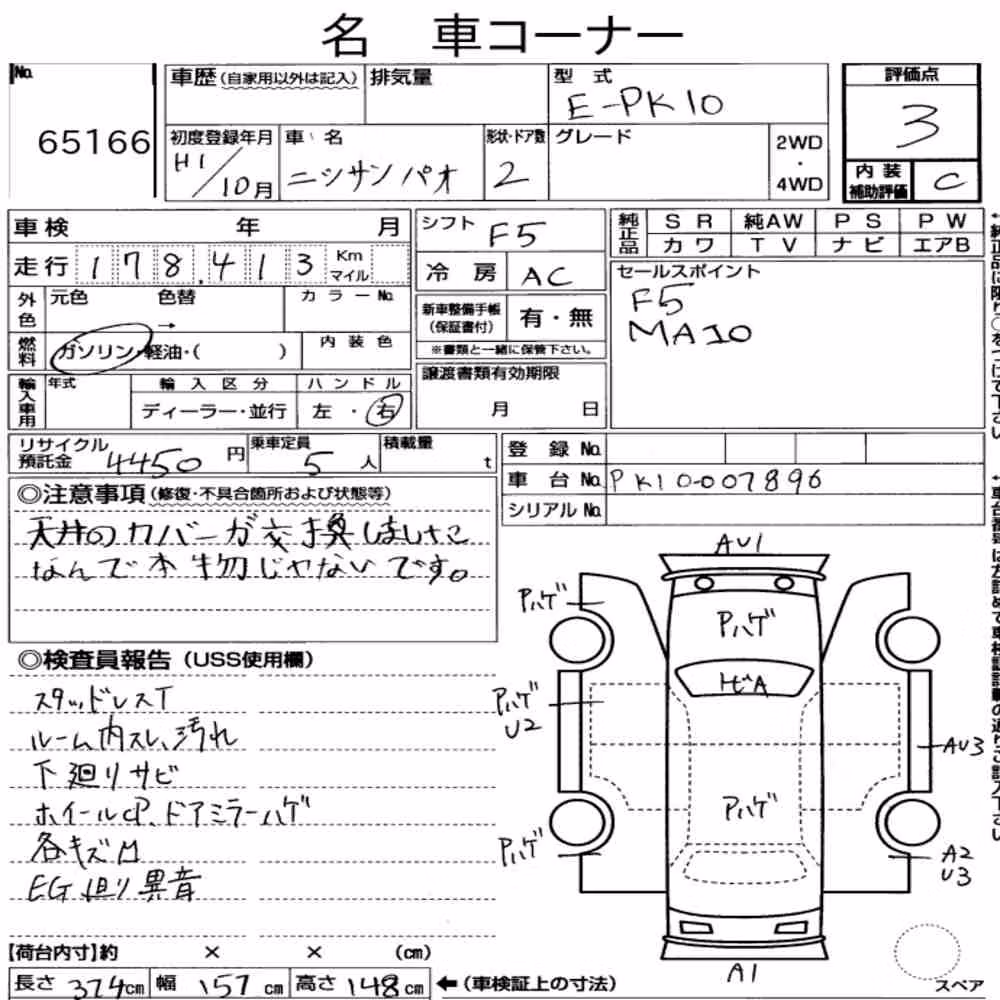 名 車コーナー
No.
65166
車歴 (自家用以外は記入)
排気量
型 式
E-PK10
評価点
3
内 装
補助評価
C
初度登録年月
H1/10月
車 名
ニッサン パオ
形状・ドア数
2
グレード
2WD
・
4WD
車検 年 月
走行 178,413 Km マイル
外色
元色 色替 →
カラーNo.
燃料
ガソリン・軽油・( )
内 装 色
輸入車用
年式
輸 入 区 分
ディーラー・並行
ハ ン ド ル
左 ・ 右
シフト F5
冷 房 AC
新車整備手帳
(保証書付)
有・無
※書類と一緒に保管下さい。
譲渡書類有効期限
月 日
純正品
SR 純AW PS PW
カワ TV ナビ エアB
セールスポイント
F5
MA10
リサイクル
預託金 4450 円
乗車定員 5 人
積載量 t
登 録 No.
車 台 No. PK10-007896
シリアル No.
◎注意事項 (修復・不具合箇所および状態等)
天井のカバーが交換しました
なんで本物じゃないです。
◎検査員報告 (USS使用欄)
スタッドレスT
ルーム内スレ、汚れ
下廻りサビ
ホイールcP、ドアミラーハゲ
各キズ凹
EG廻り異音
AU1
Pハゲ
Pハゲ
トビA
Pハゲ
U2
AU3
Pハゲ
Pハゲ
A2
U3
A1
スペア
【荷台内寸】約 × × (cm)
長さ 374cm 幅 157cm 高さ 148cm ←(車検証上の寸法)